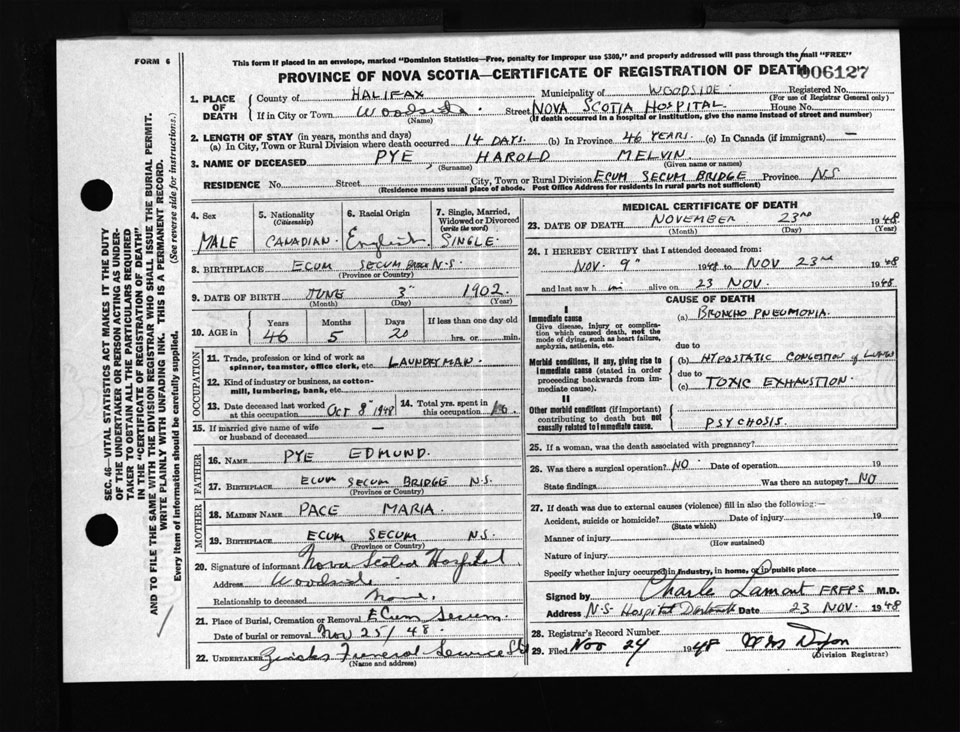 FORM 6
This form if placed in an envelope, marked "Dominion Statistics—Free, penalty for improper use $300," and properly addressed will pass through the mail "FREE"
PROVINCE OF NOVA SCOTIA—CERTIFICATE OF REGISTRATION OF DEATH 006127
SEC. 46—VITAL STATISTICS ACT MAKES IT THE DUTY
OF THE UNDERTAKER OR PERSON ACTING AS UNDER-
TAKER TO OBTAIN ALL THE PARTICULARS REQUIRED
IN THE "CERTIFICATE OF REGISTRATION OF DEATH"
AND TO FILE THE SAME WITH THE DIVISION REGISTRAR WHO SHALL ISSUE THE BURIAL PERMIT.
WRITE PLAINLY WITH UNFADING INK. THIS IS A PERMANENT RECORD.
Every item of information should be carefully supplied. (See reverse side for instructions.)
1. PLACE OF DEATH
County of HALIFAX Municipality of WOODSIDE Registered No.
(For use of Registrar General only)
If in City or Town Woodside Street NOVA SCOTIA HOSPITAL House No.
(Name) (If death occurred in a hospital or institution, give the name instead of street and number)
2. LENGTH OF STAY (in years, months and days)
(a) In City, Town or Rural Division where death occurred 14 DAYS (b) In Province 46 YEARS. (c) In Canada (if immigrant) —
3. NAME OF DECEASED PYE, HAROLD MELVIN.
(Surname) (Given name or names)
RESIDENCE No. Street City, Town or Rural Division ECUM SECUM BRIDGE Province N.S
(Residence means usual place of abode. Post Office Address for residents in rural parts not sufficient)
4. Sex MALE
5. Nationality (Citizenship) CANADIAN
6. Racial Origin English
7. Single, Married, Widowed or Divorced (write the word) SINGLE
8. BIRTHPLACE ECUM SECUM BRIDGE N.S.
(Province or Country)
9. DATE OF BIRTH JUNE 3 1902.
(Month) (Day) (Year)
10. AGE in Years Months Days If less than one day old
46 5 20 hrs. or min.
OCCUPATION
11. Trade, profession or kind of work as spinner, teamster, office clerk, etc. LAUNDRYMAN.
12. Kind of industry or business, as cotton-mill, lumbering, bank, etc.
13. Date deceased last worked at this occupation Oct 8 1948
14. Total yrs. spent in this occupation
15. If married give name of wife or husband of deceased —
FATHER
16. NAME PYE EDMUND.
17. BIRTHPLACE ECUM SECUM BRIDGE N.S.
(Province or Country)
MOTHER
18. MAIDEN NAME PACE MARIA
19. BIRTHPLACE ECUM SECUM N.S.
(Province or Country)
20. Signature of informant Nova Scotia Hospital
Address Woodside
Relationship to deceased None.
21. Place of Burial, Cremation or Removal ECum Secum.
Date of burial or removal Nov 25/48.
22. UNDERTAKER Zwicks Funeral Service
(Name and address)
MEDICAL CERTIFICATE OF DEATH
23. DATE OF DEATH NOVEMBER 23RD 1948
(Month) (Day) (Year)
24. I HEREBY CERTIFY that I attended deceased from:
NOV. 9 1948 to NOV 23rd 1948
and last saw him alive on 23 NOV. 1948.
CAUSE OF DEATH
I
Immediate cause
Give disease, injury or complication which caused death, not the mode of dying, such as heart failure, asphyxia, asthenia, etc.
(a) BRONCHO PNEUMONIA.
due to
Morbid conditions, if any, giving rise to immediate cause (stated in order proceeding backwards from immediate cause).
(b) HYPOSTATIC CONGESTION of LUNGS
due to
(c) TOXIC EXHAUSTION.
II
Other morbid conditions (if important) contributing to death but not causally related to immediate cause.
PSYCHOSIS.
25. If a woman, was the death associated with pregnancy?
26. Was there a surgical operation? NO. Date of operation 19
State findings Was there an autopsy? NO
27. If death was due to external causes (violence) fill in also the following:—
Accident, suicide or homicide? Date of injury 19
(State which)
Manner of injury
(How sustained)
Nature of injury
Specify whether injury occurred in industry, in home, or in public place
Signed by Charles Lamont M.D.
Address N.S. Hospital Dartmouth Date 23 NOV. 1948
28. Registrar's Record Number
29. Filed Nov 24 1948
(Division Registrar)